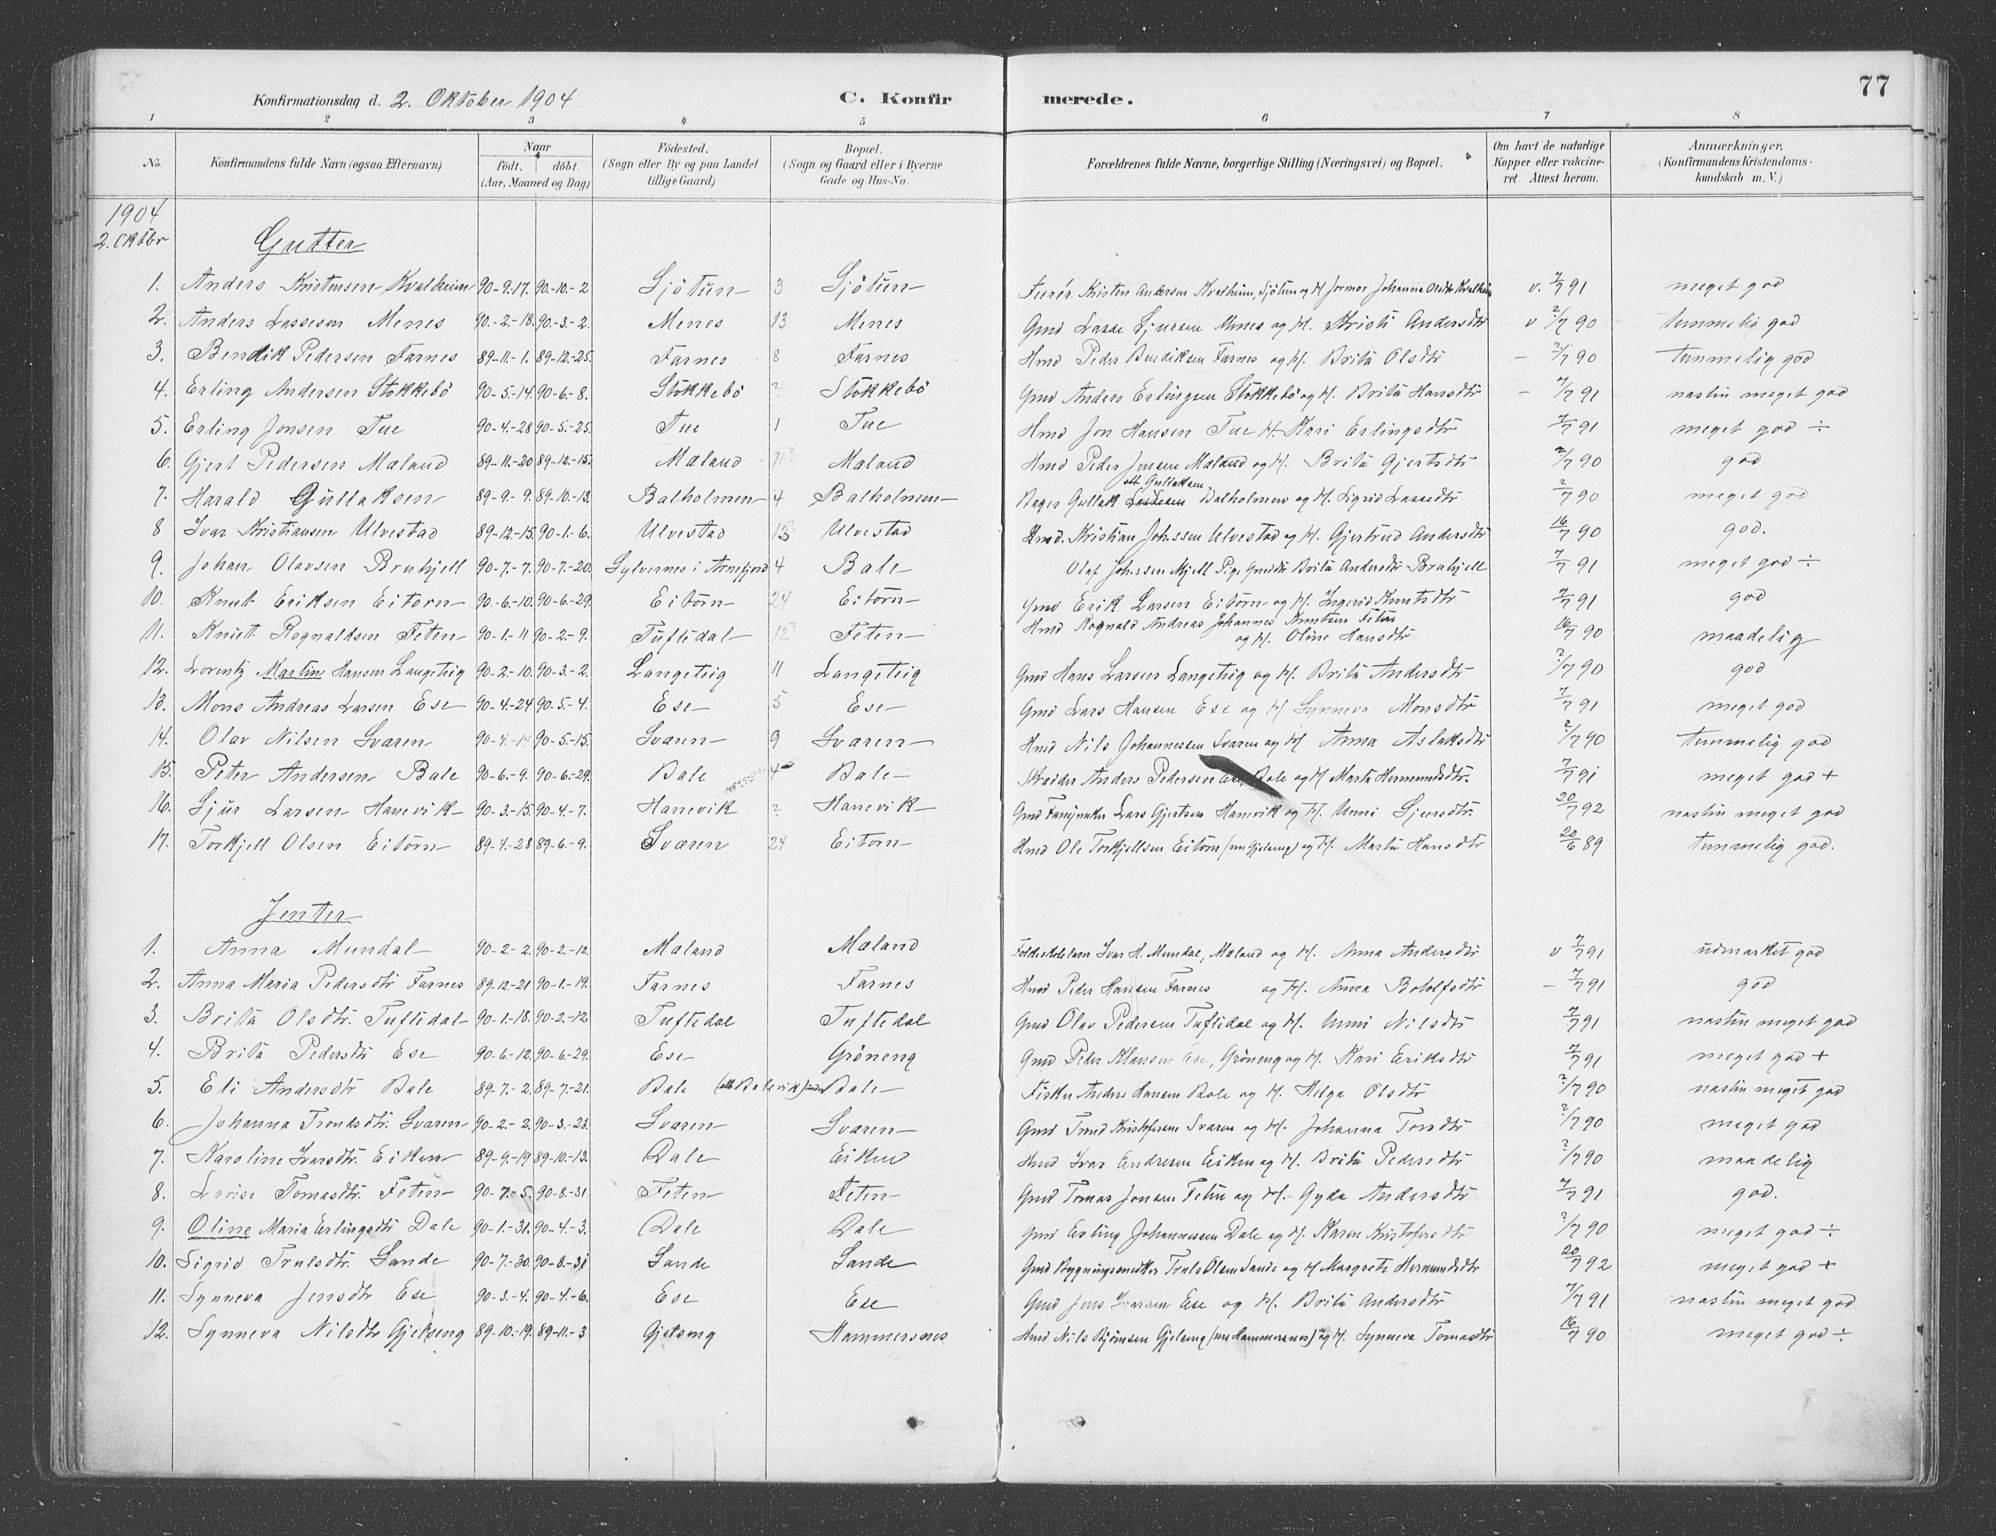 Konfirmationsdag d. 2. Oktober 1904 C. Konfir merede. 77
1 2 3 4 5 6 7 8
No. Konfirmandens fulde Navn (ogsaa Efternavn) Naar født. døbt. (Aar, Maaned og Dag) Fødested. (Sogn eller By og paa Landet tillige Gaard) Bopæl. (Sogn og Gaard eller i Byerne Gade og Hus-No. Forældrenes fulde Navne, borgerlige Stilling (Næringsvei) og Bopæl. Om havt de naturlige Kopper eller vakcineret. Attest herom. Anmærkninger. (Konfirmandens Kristendomskundskab m. V.)
1904
2. Oktbr
Gutter
1. Anders Kristensen Kvalheim 90-9-17. 90-10-2 Sjötun 3 Sjötun Kristen Andersen Kvalheim, Sjötun og H. Johanna v. 7/7 91 meget god
2. Anders Lassesen Menes 90-2-18. 90-3-2. Menes 13 Menes Gmd Lasse Sjursen Menes og H. Kristi Andersdtr v 2/7 90 temmelig god
3. Bendik Pedersen Farnes 89-11-1. 89-12-25. Farnes 8 Farnes Hmd Peder Bendiksen Farnes og H. Brita Olsdtr - 2/7 90 temmelig god
4. Erling Andersen Stokkebö 90-5-14. 90-6-8. Stokkebö 2 Stokkebö Gmd Anders Erlingsen Stokkebö og H. Brita Hansdtr - 7/7 91 næsten meget god
5. Erling Jonsen Tue 90-4-28 90-5-25. Tue 1 Tue Hmd Jon Hansen Tue H. Kari Erlingsdtr 7/7 91 meget god ÷
6. Gjert Pedersen Mæland 89-11-20 89-12-15. Mæland Mæland Hmd Peder Jensen Mæland og H. Brita Gjertsdtr 2/7 90 god
7. Harald Gullaksen 89-9-9. 89-10-13. Balholmen 4 Balholmen Bager Gullak Lassesen Gullaksen Balholmen og H. Sigrid Lassedtr 2/7 90 meget god
8 Ivar Kristiansen Ulvestad 89-12-15. 90-1-6. Ulvestad 13 Ulvestad Hmd. Kristian Johssen Ulvestad og H. Gjertrud Andersdtr 16/7 90 god.
9. Johan Olavsen Brubjell 90-7-7. 90-7-20. Sylvernes i Arnefjord 4 Bale Olaf Johssen Mjell Pige Brita Andersdtr Brubjell 7/7 91 meget god ÷
10. Knut Eriksen Eitorn 90-6-10. 90-6-29. Eitorn 24 Eitorn Gmd Erik Larsen Eitorn og H. Ingerid Knutsdtr 7/7 91 god
11. Knut Rognaldsen Feten 90-1-11 90-2-9. Tuftedal 12 Feten Hmd Rognald Andreas Johannes Knutsen Feten og H. Oline Hansdtr 16/7 90 maadelig
12. Lorentz Martin Hansen Langeteig 90-2-10. 90-3-2. Langeteig 11 Langeteig Gmd Hans Larsen Langeteig og H. Brita Andersdtr 2/7 90 god
13. Mons Andreas Larsen Ese 90-4-24 90-5-4. Ese 5 Ese Gmd Lars Hansen Ese og H Synneva Monsdtr 7/7 91 meget god
14. Olav Nilsen Sværen 90-4-14 90-5-15. Sværen 9 Sværen Hmd Nils Johannessen Sværen og H Anna Aslaksdtr 2/7 90 temmelig god
15. Peter Andersen Bale 90-6-9. 90-6-29. Bale 4 Bale Skræder Anders Pedersen Bale og H. Marta Hermundsdtr. 7/7 91 meget god +
16. Sjur Larsen Hanevik 90-3-15. 90-4-7. Hanevik 2 Hanevik Gmd Lars Gjertsen Hanevik og H. Unni Sjursdtr. 20/7 92 næsten meget god
17. Torkjell Olsen Eitorn 89-4-28 89-6-9. Sværen 24 Eitorn Hmd Ole Torkjellsen Eitorn og H. Marta Hansdtr 20/6 89 temmelig god.
Jenter
1. Anna Mundal 90-2-2. 90-2-12. Mæland Mæland Folkeskolelærer Ivar H. Mundal, Mæland og H. Anna Andersdtr v 7/7 91 udmærket god
2. Anna Maria Pedersdtr Farnes 89-12-21 90-1-19. Farnes Farnes Hmd Peder Hansen Farnes og H. Anna Botolfsdtr - 7/7 91 god
3. Brita Olsdtr. Tuftedal 90-1-18. 90-2-12 Tuftedal Tuftedal Gmd Olav Pedersen Tuftedal og H. Unni Nilsdtr 7/7 91 næsten meget god
4. Brita Pedersdtr Ese 90-6-12. 90-6-29. Ese Gröneng Gmd Peder Klausen Ese, Gröneng og H. Kari Eriksdtr 7/7 91 meget god +
5. Eli Andersdtr Bale 89-7-2. 89-7-21. Bale Bale Fisker Anders Hansen Bale og H. Helga Olsdtr 2/7 90 næsten meget god
6. Johanna Trondsdtr. Sværen 90-2-2. 90-3-23. Sværen Sværen Gmd Trond Kristofersen Sværen og H. Johanna Torsdtr 2/7 90 meget god
7. Karoline Ivarsdtr. Eiken 89-9-19 89-10-13. Dale Eiken Hmd Ivar Andresen Eiken og H. Brita Pedersdtr 2/7 90 maadelig
8. Lovise Tomasdtr. Feten 90-7-5. 90-8-31 Feten Feten Gmd Tomas Jonsen Feten og H. Gyda Andersdtr 7/7 91 god.
9. Oline Maria Erlingsdtr Dale 90-1-31. 90-4-3. Dale Dale Gmd Erling Johannessen Dale og H. Karen Kristofersdtr 2/7 90 meget god ÷
10. Sigrid Trulsdtr. Sande 90-7-30. 90-8-31 Sande Sande Gmd Bygningssnedker Truls Olsen Sande og H Margrete Hermundsdtr 20/7 92 meget god +
11. Synneva Jensdtr Ese 90-3-4. 90-4-6. Ese Ese Gmd Jens Ivarsen Ese og H. Brita Andersdtr 7/7 91 næsten meget god
12. Synneva Nilsdtr Gjelseng 89-10-19. 89-11-3 Gjelseng Hammersnes Hmd Nils Björnsen Gjelseng (nu Hammersnes) og H. Synneva Tomasdtr 16/7 90 meget god ÷